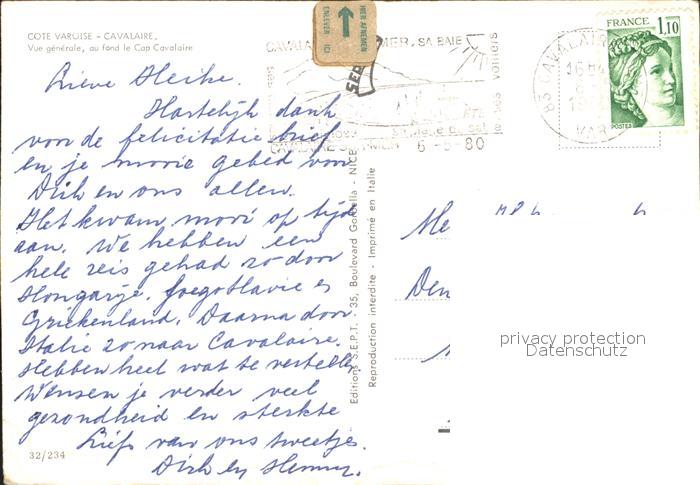 COTE VAROISE - CAVALAIRE,
Vue générale, au fond le Cap Cavalaire
Lieve Heike.
Hartelijk dank
voor de felicitatie brief
en je mooie gebed voor
Dirk en ons allen.
Het kwam mooi op tijd
aan. We hebben een
hele reis gehad zo door
Hongarije. Joegoslavie en
Griekenland. Daarna door
Italie zo naar Cavalaire.
Hebben heel wat te vertellen
Wensen je verder veel
gezondheid en sterkte
Liefs van ons tweetjes.
Dirk en Henny.
32/234
Editions S.E.P.T. - 35, Boulevard Gorbella - NICE
Reproduction interdite - Imprimé en Italie
HIER AFNEMEN
ENLEVER ICI
SA BAIE
6-6-80
FRANCE 1,10
POSTES
83 CAVALAIRE
VAR
Me
Den
privacy protection
Datenschutz